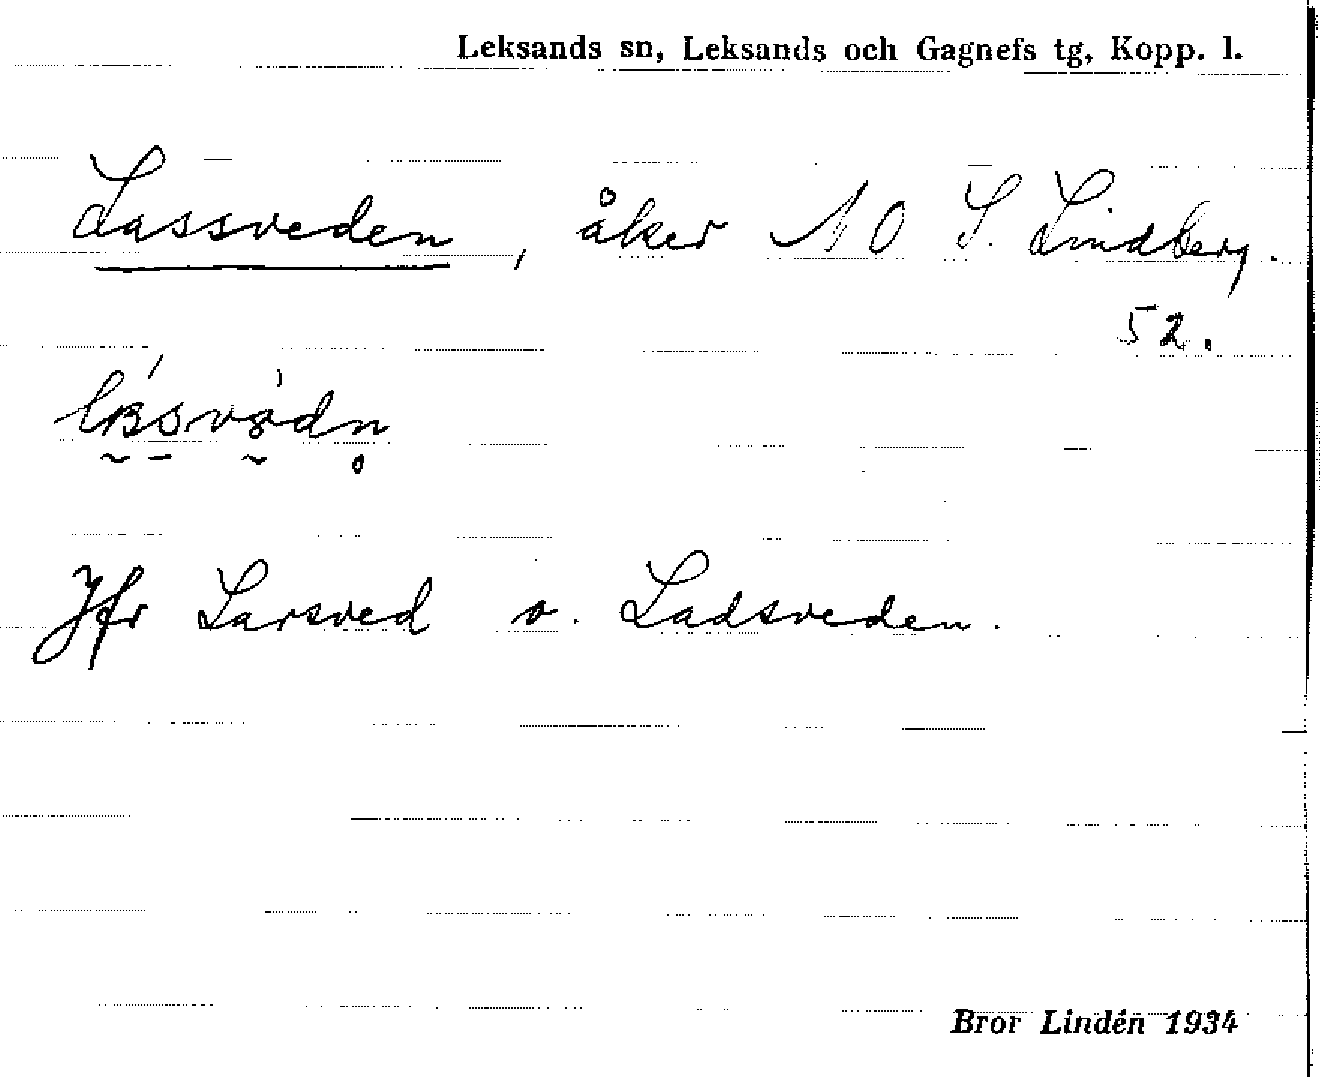 Leksands sn, Leksands och Gagnefs tg, Kopp. l.
Lassveden, åker NO S. Lindberg.
52.
Jfr Larsved o. Ladsveden.
Bror Lindén 1934